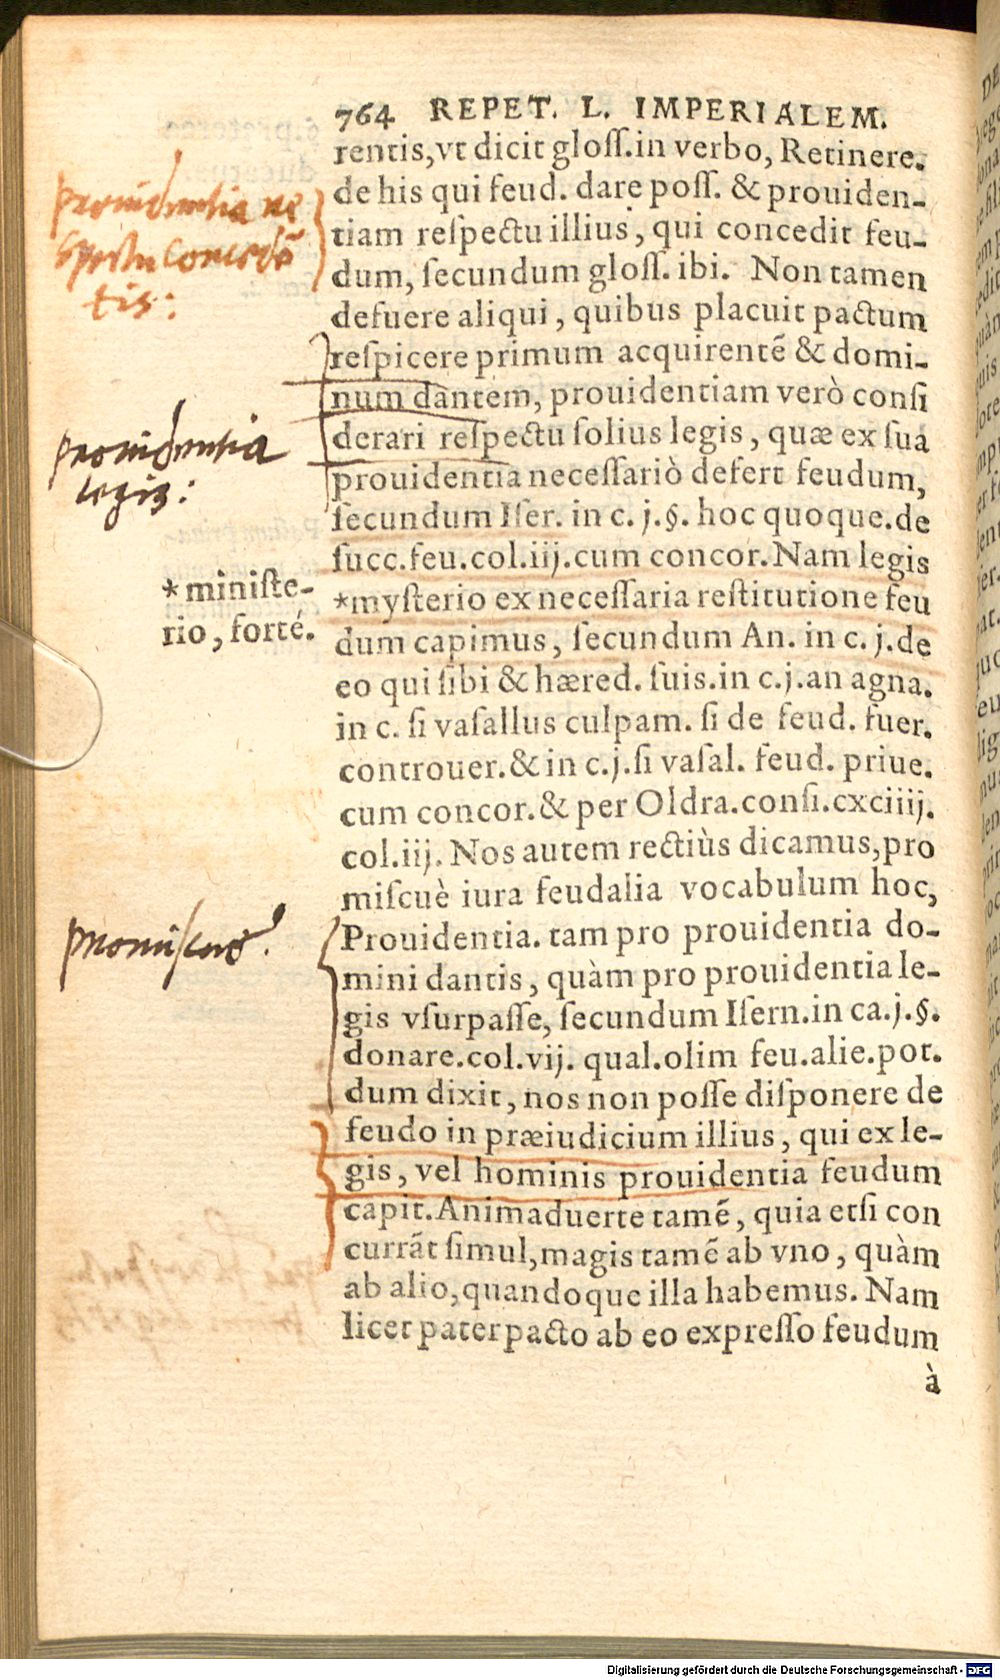 764 REPET. L. IMPERIALEM.
rentis, vt dicit gloſſ. in verbo, Retinere.
de his qui feud. dare poſſ. & prouiden-
tiam reſpectu illius, qui concedit feu-
dum, ſecundum gloſſ. ibi. Non tamen
defuere aliqui, quibus placuit pactum
reſpicere primum acquirentē & domi-
num dantem, prouidentiam verò conſi
derari reſpectu ſolius legis, quæ ex ſua
prouidentia neceſſariò defert feudum,
ſecundum Iſer. in c. j. §. hoc quoque. de
ſucc. feu. col. iij. cum concor. Nam legis
*myſterio ex neceſſaria reſtitutione feu
dum capimus, ſecundum An. in c. j. de
eo qui ſibi & hæred. ſuis. in c. j. an agna.
in c. ſi vaſallus culpam. ſi de feud. fuer.
controuer. & in c. j. ſi vaſal. feud. priue.
cum concor. & per Oldra. conſi. cxciiij.
col. iij. Nos autem rectiùs dicamus, pro
miſcuè iura feudalia vocabulum hoc,
Prouidentia. tam pro prouidentia do-
mini dantis, quàm pro prouidentia le-
gis vſurpaſſe, ſecundum Iſern. in ca. j. §.
donare. col. vij. qual. olim feu. alie. pot.
dum dixit, nos non poſſe diſponere de
feudo in præiudicium illius, qui ex le-
gis, vel hominis prouidentia feudum
capit. Animaduerte tamē, quia etſi con
currāt ſimul, magis tamē ab vno, quàm
ab alio, quandoque illa habemus. Nam
licet pater pacto ab eo expreſſo feudum
à
prouidentia re
spectu concedē
tis:
prouidentia
legis:
* miniſte-
rio, forté.
promiscue
Digitalisierung gefördert durch die Deutsche Forschungsgemeinschaft - DFG